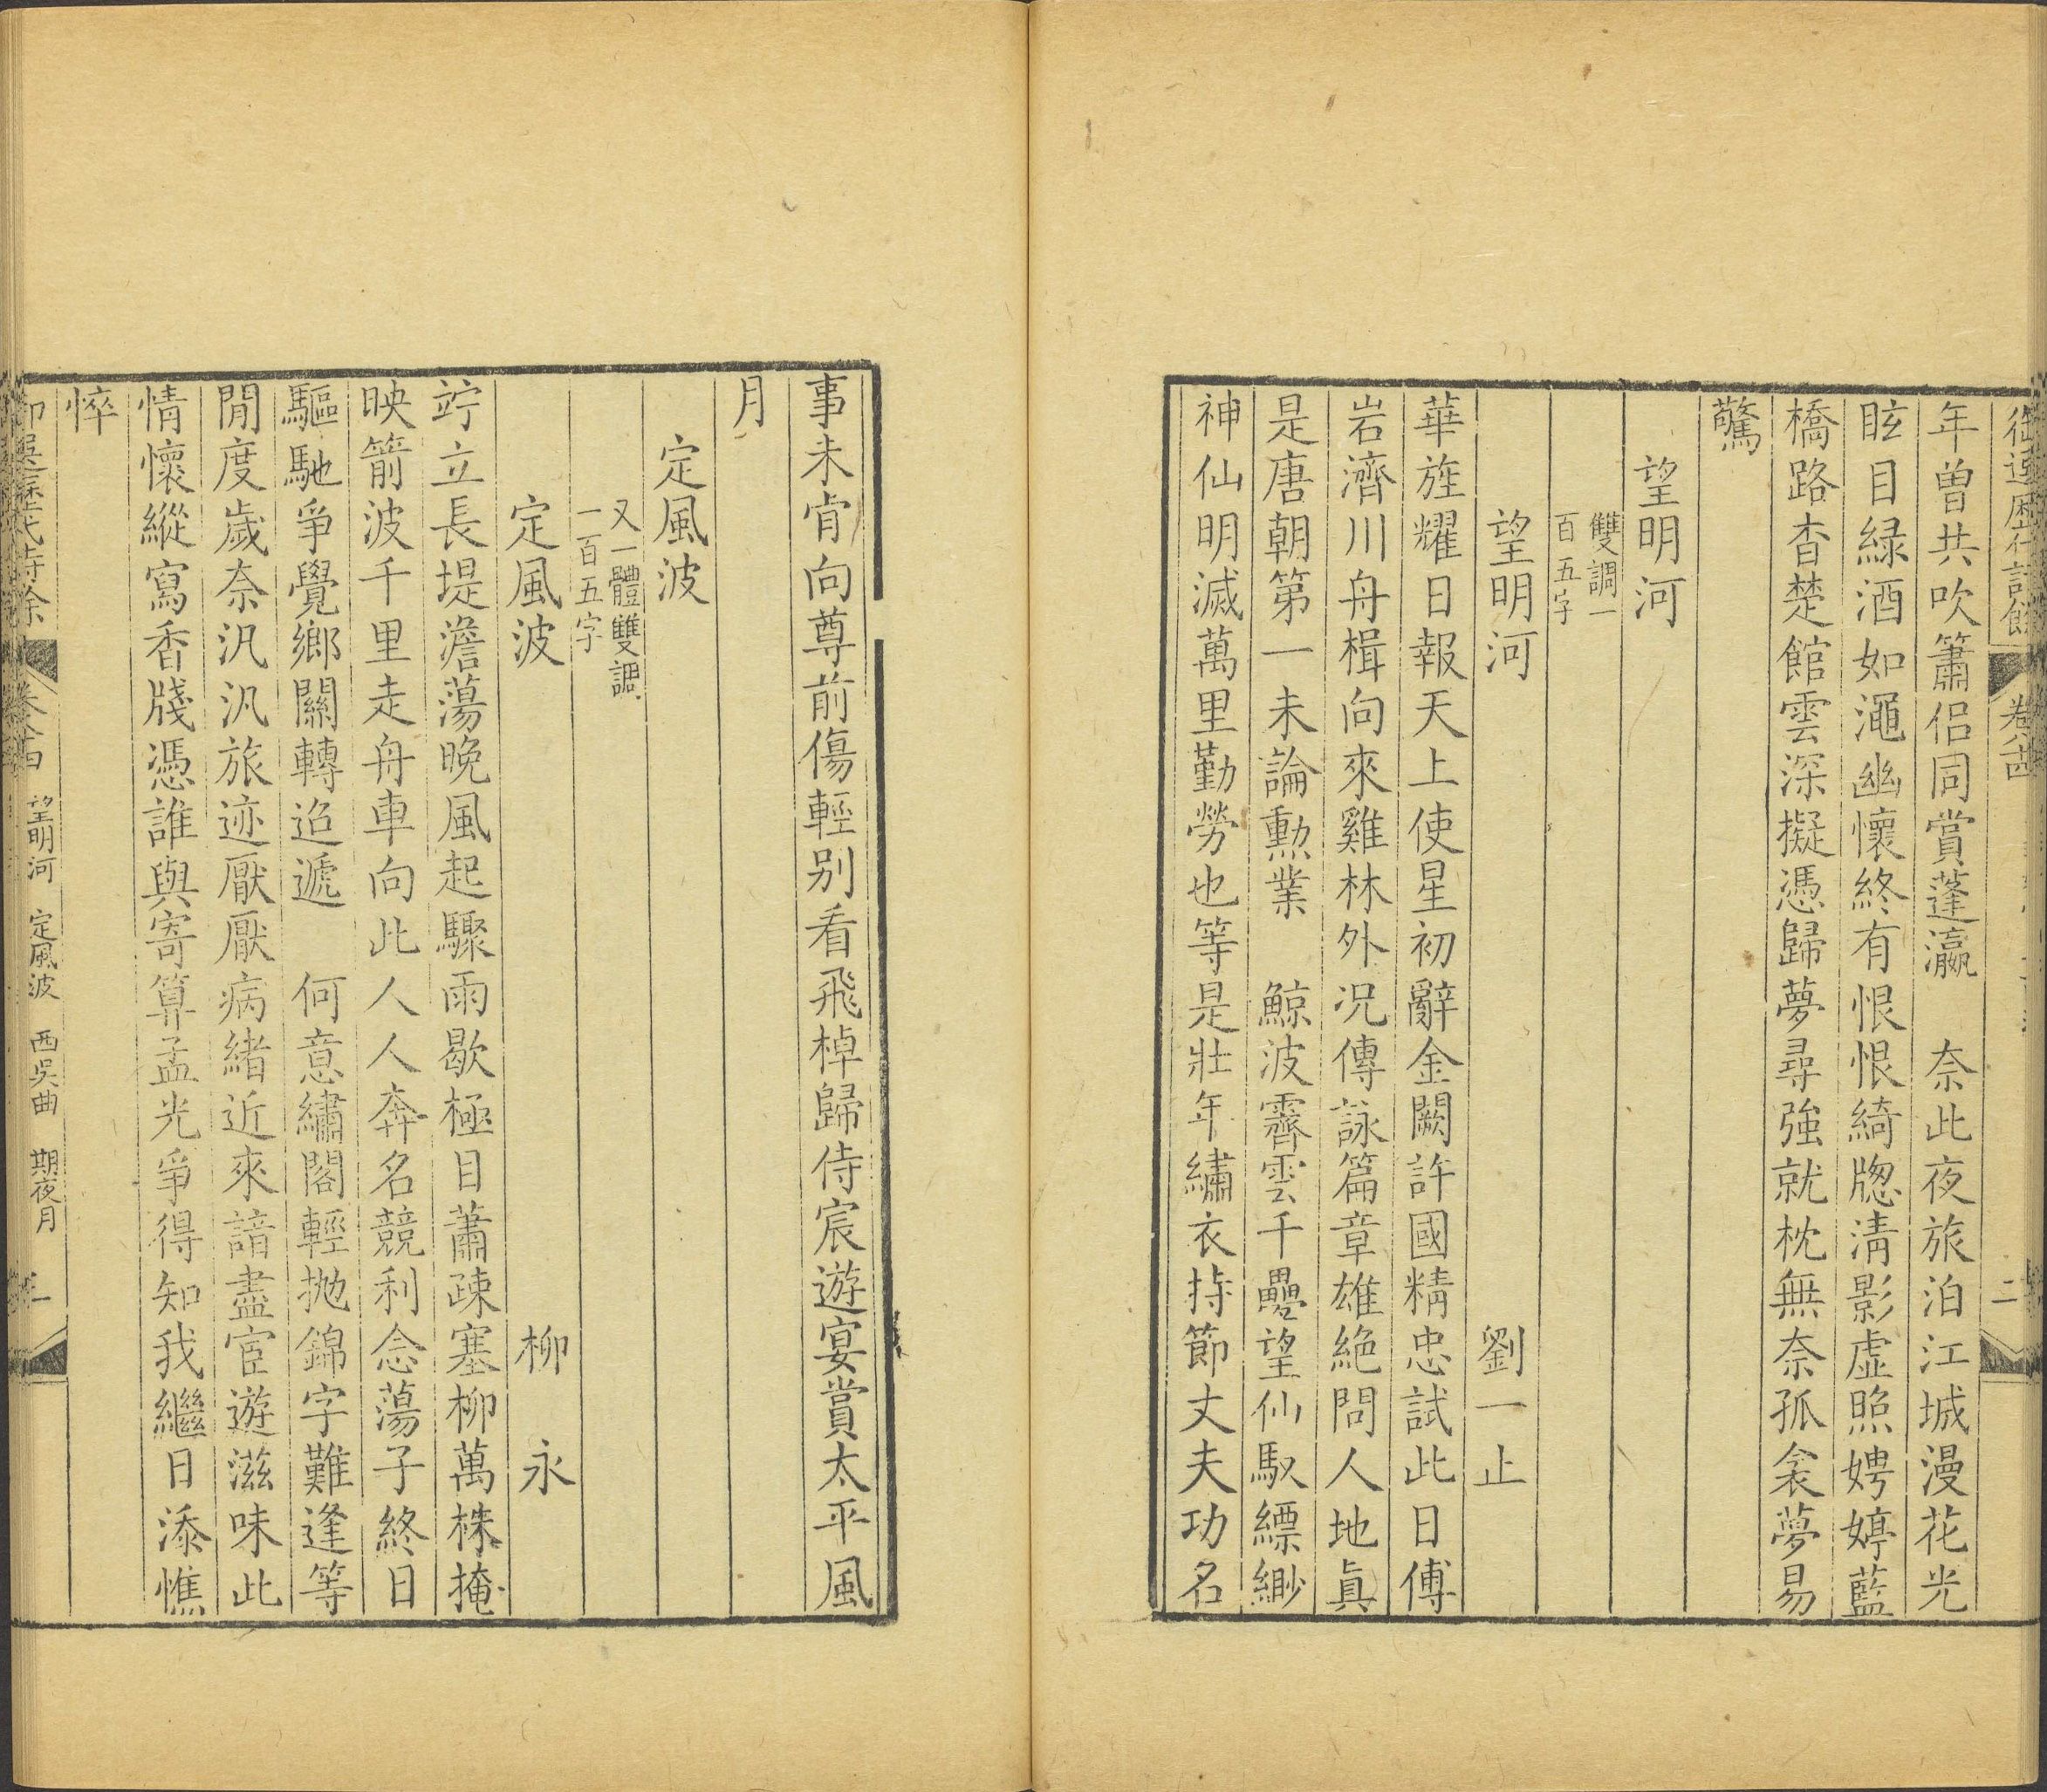 御選歷代詩餘 卷八十四 二
年曾共吹簫侣同賞蓬瀛　奈此夜旅泊江城漫花光
眩目緑酒如澠幽懷終有恨恨綺牎淸影虛照娉婷藍
橋路杳楚館雲深擬憑歸夢尋強就枕無奈孤衾夢易
驚
望明河
雙調一
百五字
望明河 劉一止
華旌耀日報天上使星初辭金闕許國精忠試此日傅
岩濟川舟楫向來雞林外况傳詠篇章雄絶問人地眞
是唐朝第一未論勲業　鯨波霽雲千疊望仙馭縹緲
神仙明滅萬里勤勞也等是壯年繡衣持節丈夫功名
事未肯向尊前傷輕别看飛棹歸侍宸遊宴賞太平風
月
定風波
又一體雙調
一百五字
定風波 柳永
竚立長堤澹蕩晚風起驟雨歇極目蕭疎塞柳萬株掩
映箭波千里走舟車向此人人奔名競利念蕩子終日
驅馳爭覺鄉關轉迢遞　何意繡閣輕抛錦字難逢等
閒度歲奈汎汎旅迹厭厭病緒近來諳盡宦遊滋味此
情懷縱寫香牋憑誰與寄算孟光爭得知我繼日添憔
悴
望明河 定風波 西吳曲 期夜月